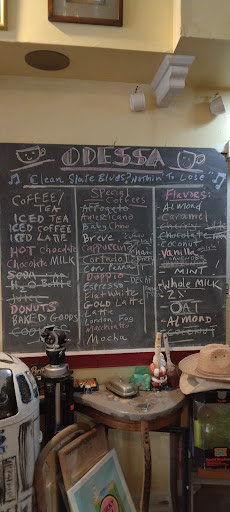 ODESSA
Clean Slate Blues? Nothin' To Lose
COFFEE/
TEA
ICED TEA
ICED COFFEE
ICED LATTE
HOT chocolate
Chocolate MILK
SODA
H2O Bottle
DONUTS
BAKED GOODS
Special
Coffees
Affogato
Americano
Baby Chino
Breve
Cappuccino
Cortado
Con Panna
Doppio
Espresso
Flat White
GOLD Latte
Latte
London Fog
Macchiato
Mocha
DECAF
Flavors:
ALMOND
Caramel
Chocolate
Coconut
Vanilla
MINT
Whole MILK
2%
OAT
ALMOND